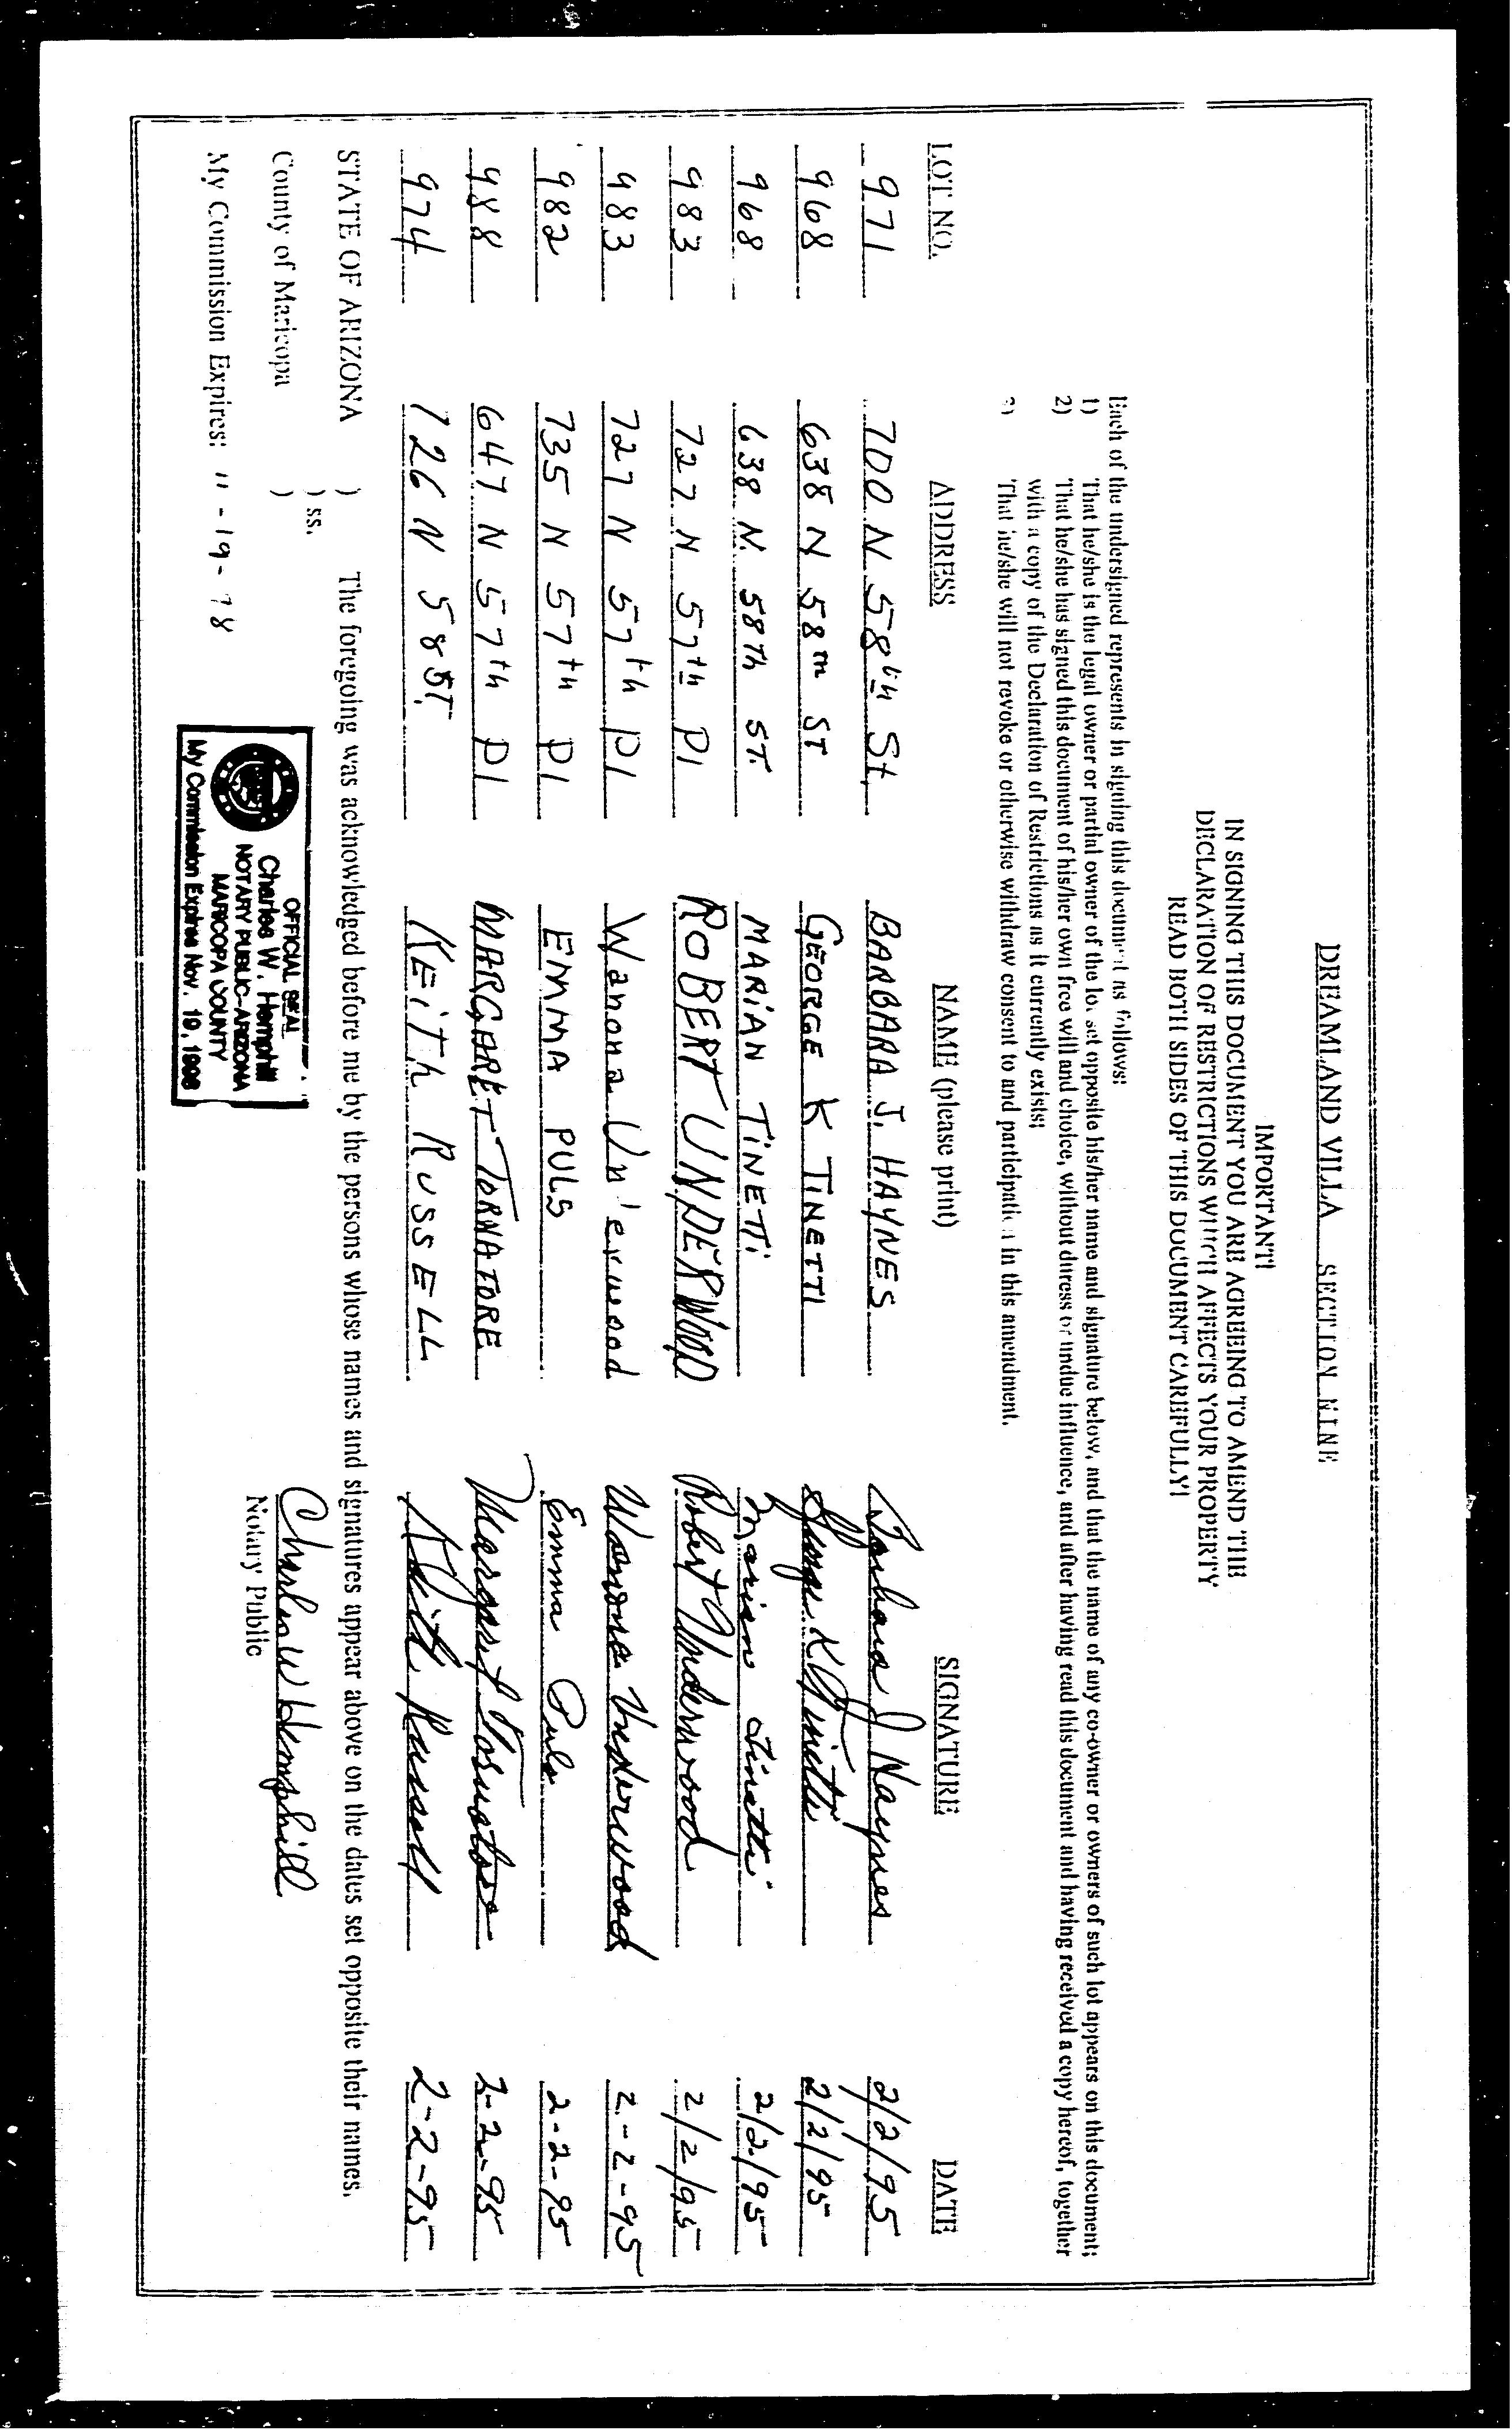 DREAMLAND VILLA SECTION NINE
IMPORTANT!
IN SIGNING THIS DOCUMENT YOU ARE AGREEING TO AMEND THE
DECLARATION OF RESTRICTIONS WHICH AFFECTS YOUR PROPERTY
READ BOTH SIDES OF THIS DOCUMENT CAREFULLY!
Each of the undersigned represents in signing this document as follows:
1) That he/she is the legal owner or partial owner of the lot set opposite his/her name and signature below, and that the name of any co-owner or owners of such lot appears on this document;
2) That he/she has signed this document of his/her own free will and choice, without duress or undue influence, and after having read this document and having received a copy hereof, together
with a copy of the Declaration of Restrictions as it currently exists;
3) That he/she will not revoke or otherwise withdraw consent to and participation in this amendment.
LOT NO. ADDRESS NAME (please print) SIGNATURE DATE
971 700 N 58th St. BARBARA J. HAYNES Barbara J Haynes 2/2/95
968 638 N 58th ST GEORGE K TINETTI George K Tinetti 2/2/95
968 638 N. 58th ST. MARIAN TINETTi Marian Tinetti 2/2/95
983 727 N 57th Pl ROBERT UNDERWOOD Robert Underwood 2/2/95
983 727 N 57th Pl Wanona Un'erwood Wanona Underwood 2-2-95
982 735 N 57th Pl EMMA PULS Emma Puls 2-2-95
988 647 N 57th Pl MARGARET TORNATORE Margaret Tornatore 2-2-95
974 726 N 58 ST. KEITh RUSSELL Keith Russell 2-2-95
STATE OF ARIZONA ) The foregoing was acknowledged before me by the persons whose names and signatures appear above on the dates set opposite their names.
) ss.
County of Maricopa )
Charles W Hemphill
Notary Public
My Commission Expires: 11-19-98
OFFICIAL SEAL
Charles W. Hemphill
NOTARY PUBLIC-ARIZONA
MARICOPA COUNTY
My Commission Expires Nov. 19, 1998